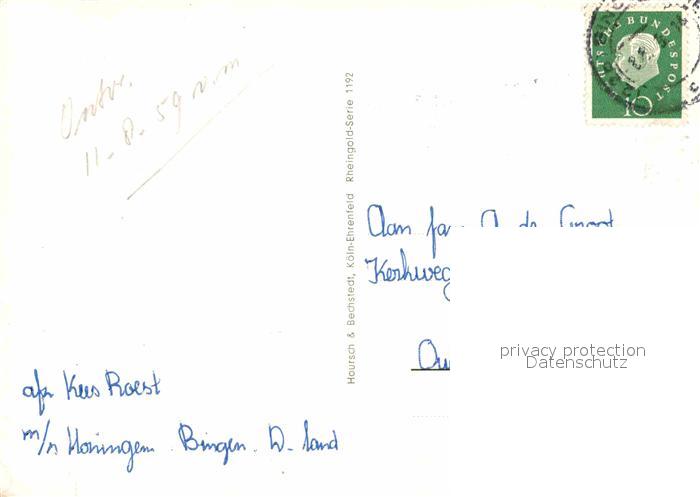 Ontv.
11-8-59 v.m
Hoursch & Bechstedt, Köln-Ehrenfeld Rheingold-Serie 1192
DEUTSCHE BUNDESPOST
10
Aan fa.
Kerkweg
privacy protection
Datenschutz
afz Kees Roest
m/s Honingem Bingen. D-land